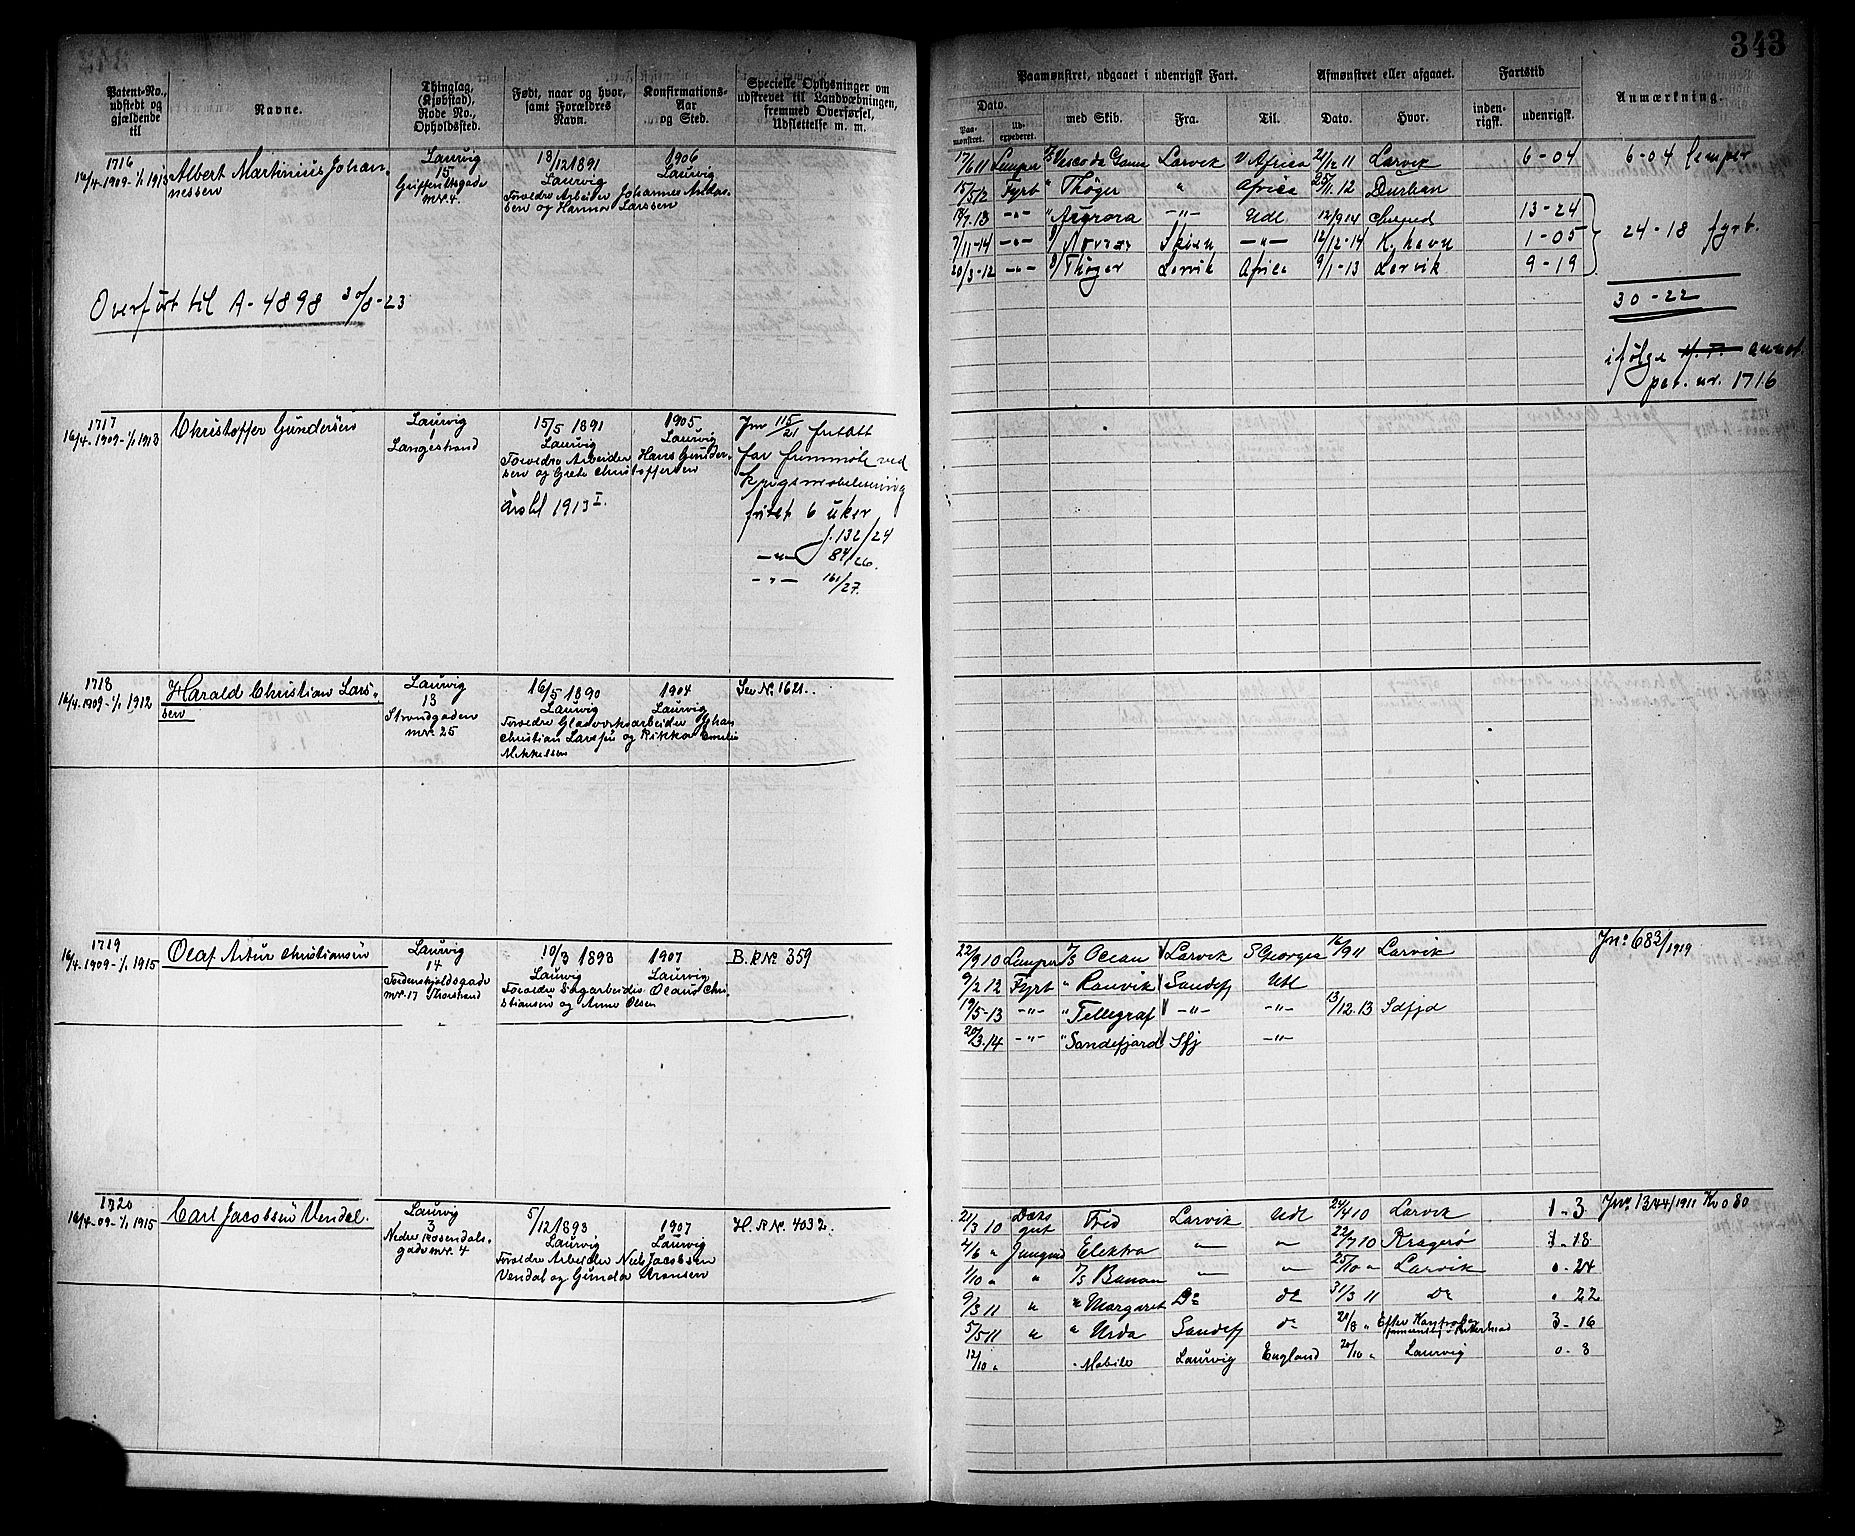 343
Patent-No., udstedt og gjældende til
Navne.
Thinglag, (Kjøbstad), Rode No., Opholdssted.
Født, naar og hvor, samt Forældres Navn.
Konfirmations-Aar og Sted.
Specielle Oplysninger om udskrevet til Landvæbningen, fremmed Overførsel, Udslettelse m. m.
Paamønstret, udgaaet i udenrigsk Fart.
Afmønstret eller afgaaet.
Fartstid
Anmærkning.
Dato.
Paa-mønstret.
Ud-expederet.
med Skib.
Fra.
Til.
Dato.
Hvor.
inden-rigsk.
udenrigsk.
1716
16/4-1909-1/1 1915
Albert Martinius Johan-
nessen
Laurvig
15
Griffenfeltsgade
nr. 4.
13/12 1891
Laurvig
Forældre Arbeider Johannes
sen og Larssen
1906
Laurvig
Overført til A-4898 30/8-23
17/6 11 Lemper Vasco da Gama Larvik Africa 21/12 11 Larvik 6-04
15/5 12 Fyrb " Thøger " Africa 25/11.12 Durban
" Aurora -"- Udl 12/9 14 13-24
7/11-14 -"- Skien -"- 12/12-14 K.havn 1-05
20/3-12 -"- Thøger Larvik Africa 9/1-13 Larvik 9-19
6-04 lemper
24-18 fyrb.
30-22
ifølge annot.
pat. nr. 1716
1717
16/4-1909-1/1 1913
Christoffer Gundersen
Laurvig
1
Langestrand
15/5 1891
Laurvig
Forældre Arbeider Hans Gunder-
sen og Grete Christoffersen
1905
Laurvig
1913 I.
Jnr 115/21 fritatt
for fremmøte ved
krigsmobilisering
fritat 6 uker
J. 132/24
-"- 84/26.
-"- 161/27.
1718
16/4-1909-1/1 1912
Harald Christian Lars-
sen
Laurvig
13
Strandgaden
nr. 25
16/5 1890
Laurvig
Forældre Glasverksarbeider Johan
Christian Larssen og Rikka Emelie
Mikkelsen
1904
Laurvig
Sev No 1621.
1719
16/4-1909-1/1 1915
Olaf Artur Christiansen
Laurvig
14
Tordenskjoldsgade
nr. 17 Thorstrand
10/3 1893
Laurvig
Forældre Sagarbeider Olaus Chri-
stiansen og Anne Olsen
1907
Laurvig
B.R No 359
22/9 10 Lemper Ocean Larvik S Georgia 16/9 11 Larvik
9/2 12 Fyrb " Ranvik Sandefj Udl
19/5-13 -"- " Tellegraf -"- -"- 13/12.13 Sdfjd
20/3.14 -"- " Sandefjord Sfj -"-
Jno 683/1919
1720
16/4-09-1/1 1915
Carl Jacobsen Vendal.
Laurvig
3
Nedre Rosendals-
gade nr. 4
5/12 1893
Laurvig
Forældre Arbeider Niels Jacobsen
Vendal og Gunda Aronsen
1907
Laurvig
H.R No. 4032.
21/3 10 Dæksgut Fred Larvik Udl 24/4 10 Larvik 1-3
4/6 " Jungmd Elektra " " 22/7 10 Kragerø 1-18
1/10 " " Banan " " 25/10 " Larvik 0-24
9/3 11 " " Margaret Do do 31/3 11 Do " 22
5/5 11 " " Urda Sandefj do 20/8 " Efter 3-16
12/10 " " Mobile Laurvig England 20/10 " Laurvig 0-8
Jnr. 1344/1911 Kr 0 80